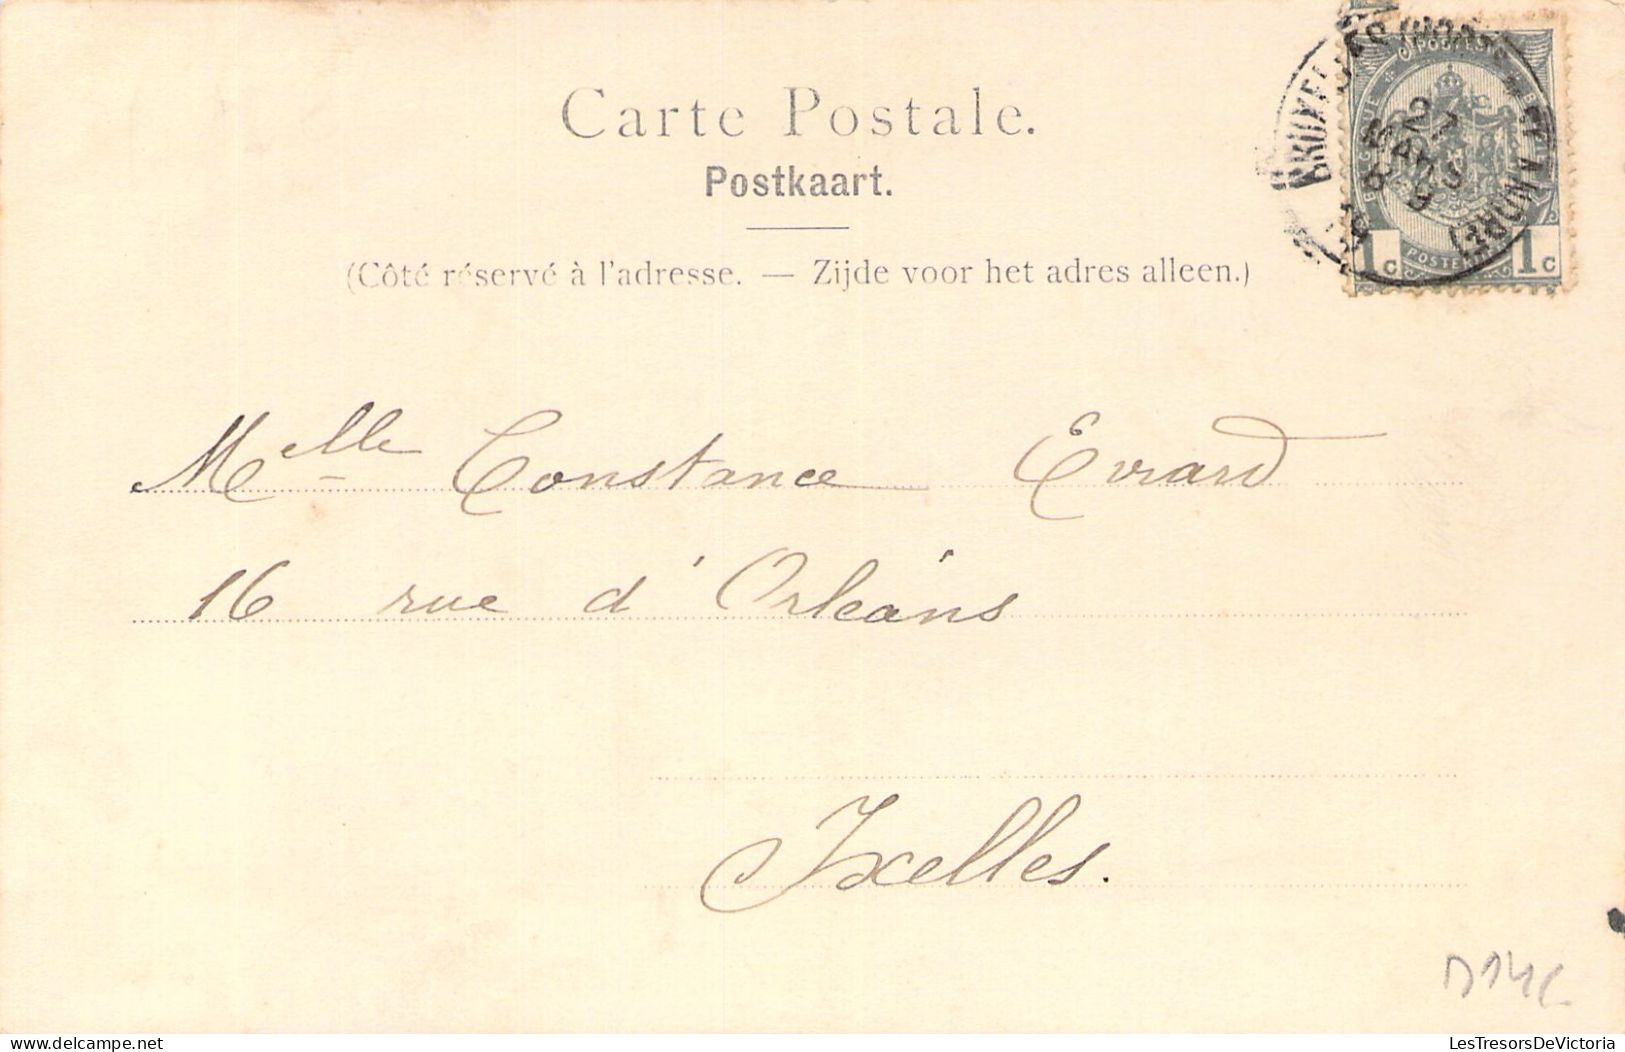 Carte Postale.
Postkaart.
(Côté réservé à l'adresse. — Zijde voor het adres alleen.)
BRUXELLES
27
MARS
POSTES
POSTES
1c 1c
Melle Constance Evrard
16 rue d'Orléans
Ixelles.
LesTresorsDeVictoria